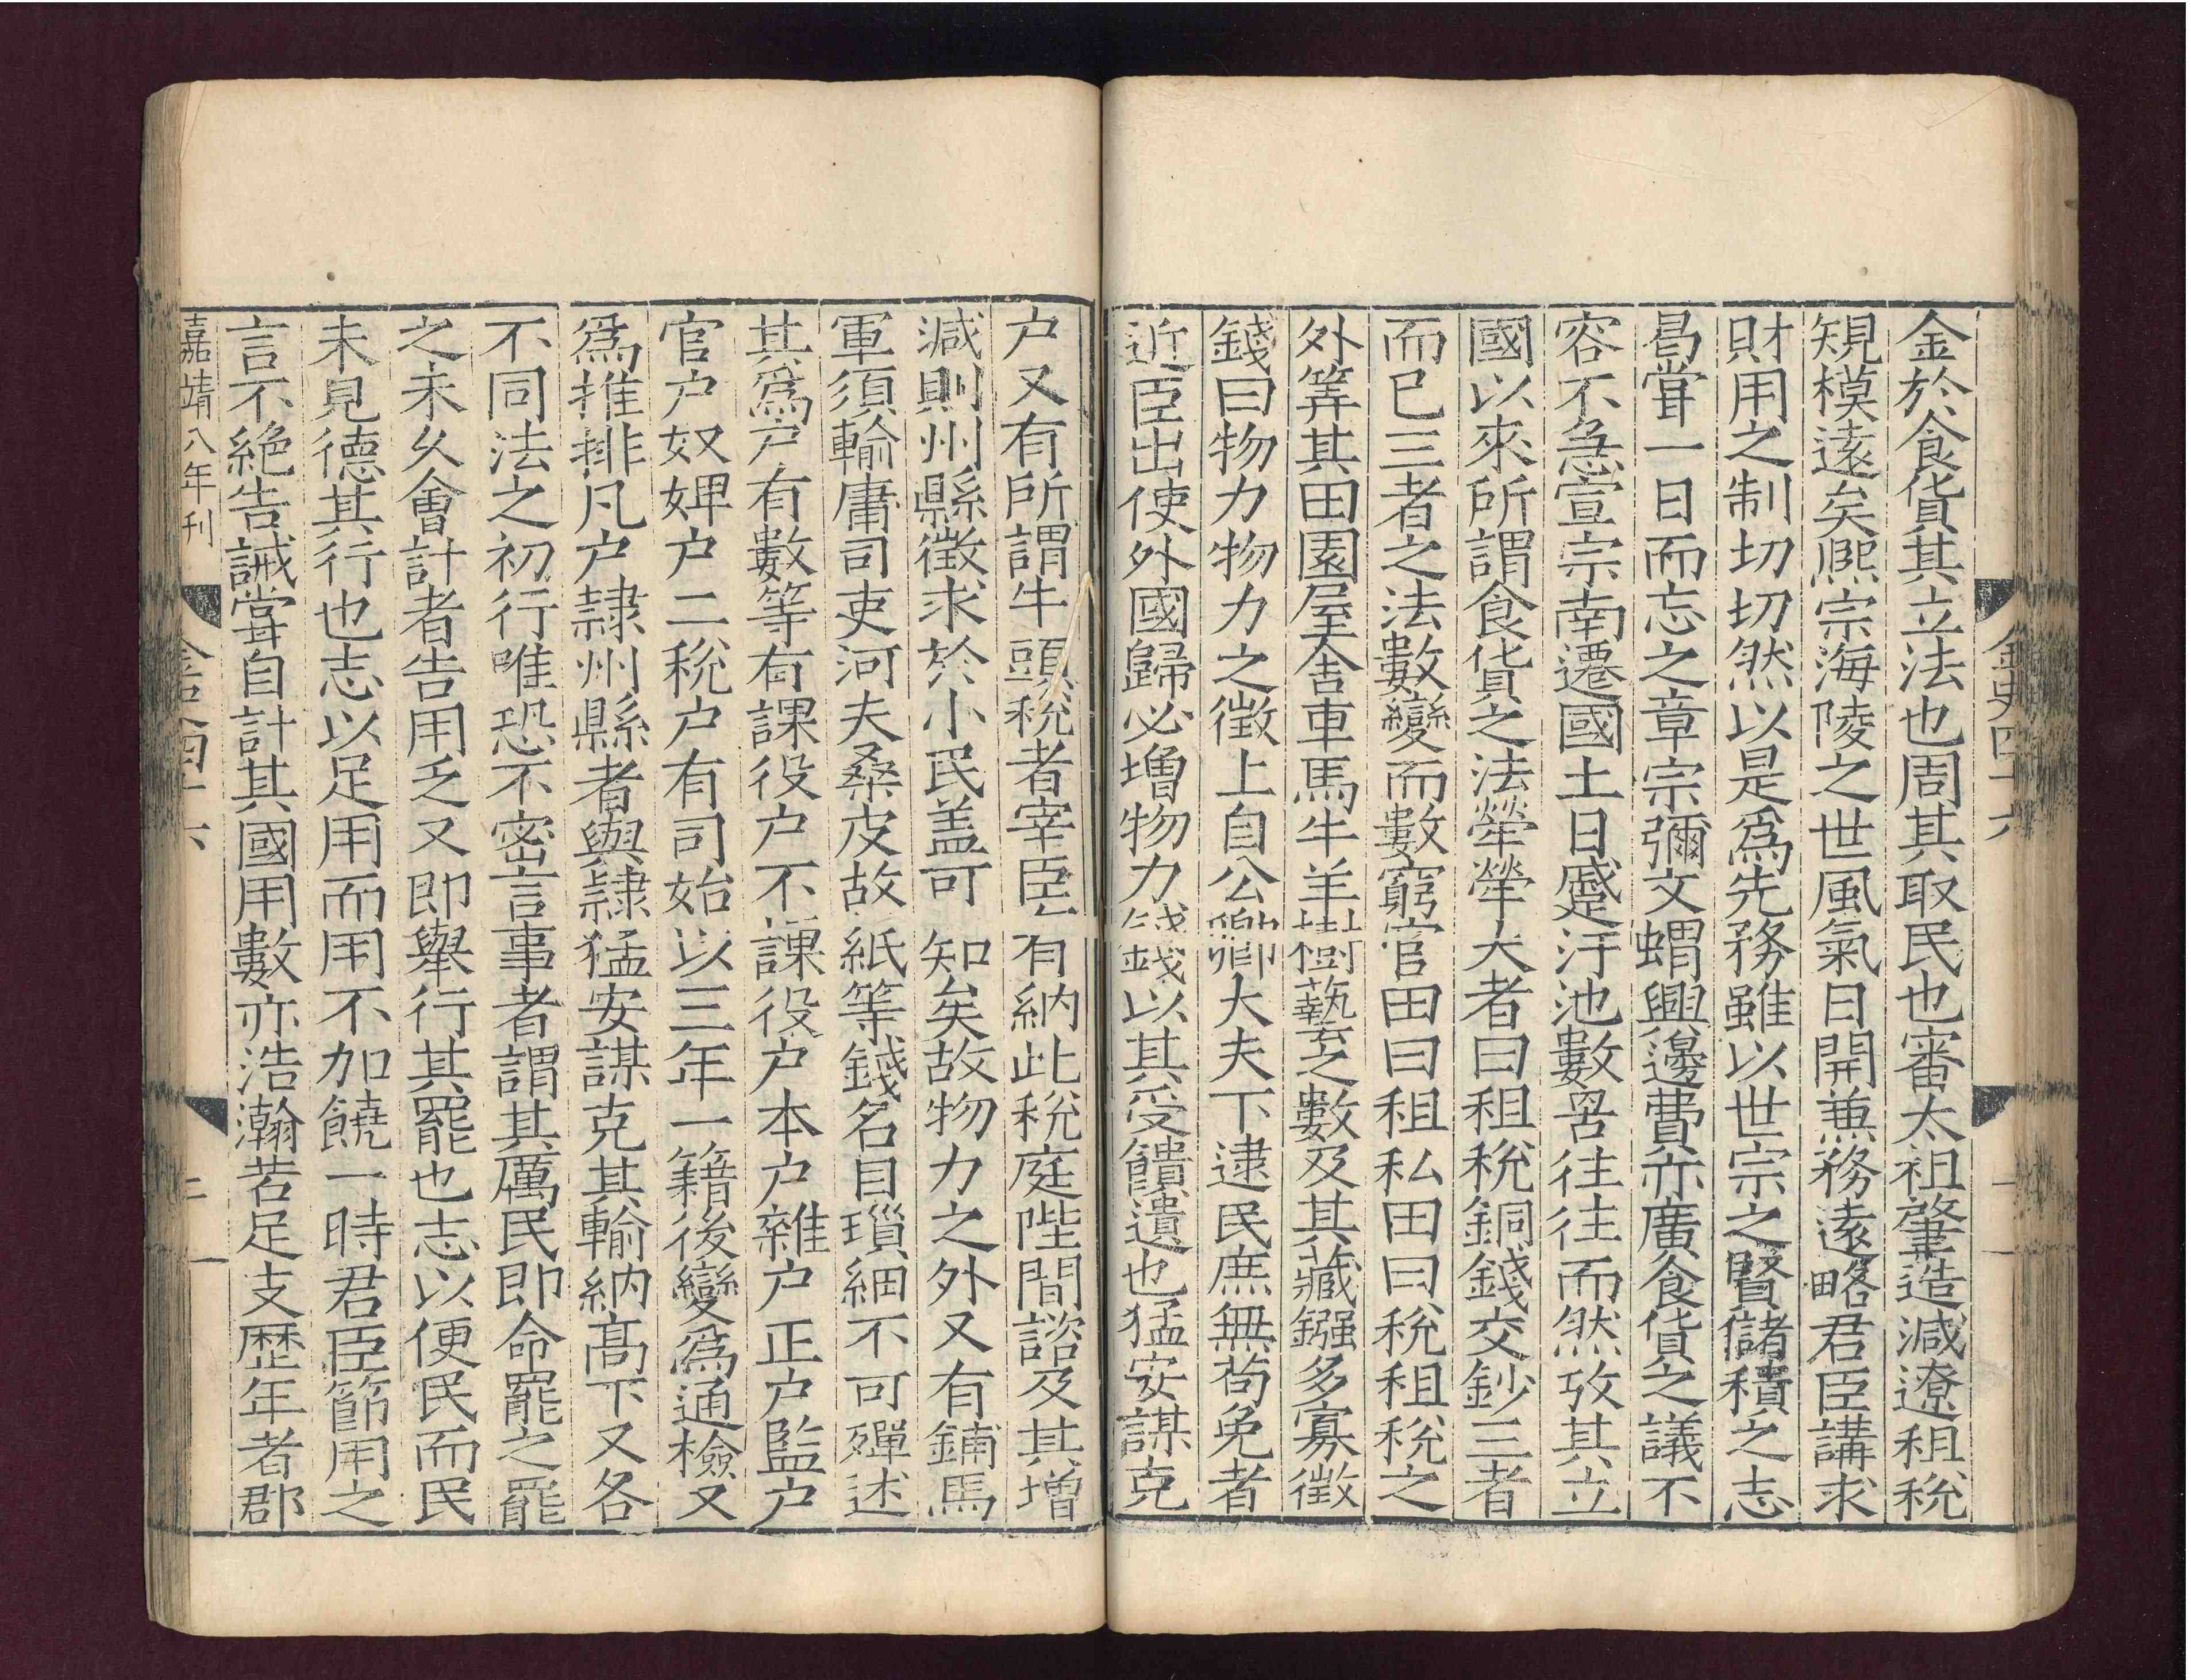 金史四十六 一
金於食貨其立法也周其取民也審太祖肇造減遼租稅
規模遠矣熙宗海陵之世風氣日開兼務遠略君臣講求
財用之制切切然以是爲先務雖以世宗之賢儲積之志
曷甞一日而忘之章宗彌文蝟興邊費亦廣食貨之議不
容不急宣宗南遷國土日蹙汙池數罟往往而然攷其立
國以來所謂食貨之法犖犖大者曰租稅銅錢交鈔三者
而已三者之法數變而數窮官田曰租私田曰稅租稅之
外筭其田園屋舍車馬牛羊樹藝之數及其藏鏹多寡徵
錢曰物力物力之徵上自公卿大夫下逮民庶無苟免者
近臣出使外國歸必增物力錢以其受饋遺也猛安謀克
户又有所謂牛頭稅者宰臣有納此稅庭陛間諮及其增
減則州縣徵求於小民盖可知矣故物力之外又有鋪馬
軍須輸庸司吏河夫桑皮故紙等錢名目瑣細不可殫述
其爲户有數等有課役户不課役户本户雜户正户監户
官户奴婢户二稅户有司始以三年一籍後變爲通檢又
爲推排凡户隸州縣者與隸猛安謀克其輸納高下又各
不同法之初行唯恐不密言事者謂其厲民即命罷之罷
之未久會計者告用乏又即舉行其罷也志以便民而民
未見德其行也志以足用而用不加饒一時君臣節用之
言不絕告誡甞自計其國用數亦浩瀚若足支歷年者郡
嘉靖八年刊 金史四十六 二